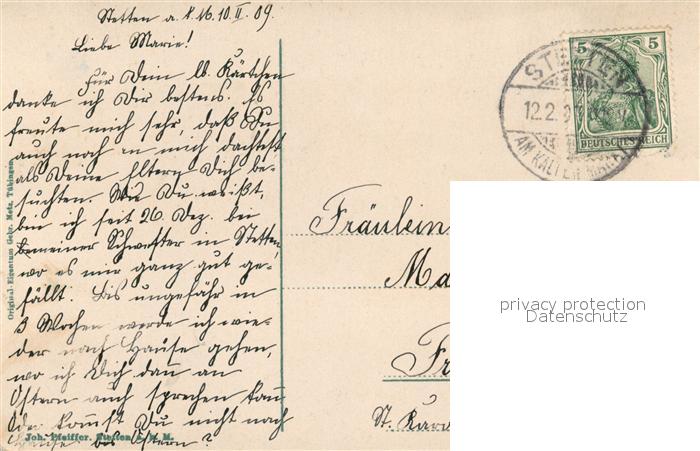 Stetten a. k. M. 10. II. 09.
Liebe Marie!
Für Dein lb. Kärtchen
danke ich Dir bestens. Es
freute mich sehr, daß Du
auch noch an mich dachtest
als Deine Eltern Dich be-
suchten. Wie Du weißt,
bin ich seit 26. Dez. bei
meiner Schwester in Stetten,
wo es mir ganz gut ge-
fällt. Bis ungefähr in
3 Wochen werde ich wie-
der nach Hause gehen,
wo ich Dich dann an
Ostern auch sprechen kann
Oder kommst Du nicht nach
Hause bis Ostern?
Original-Eigentum Gebr. Metz, Tübingen
Joh. Pfeiffer, Stetten a. k. M.
STETTEN
12.2.
AM KALTEN MARKT
5 5
DEUTSCHES REICH
Fräulein
Ma
Fr
St.
privacy protection
Datenschutz